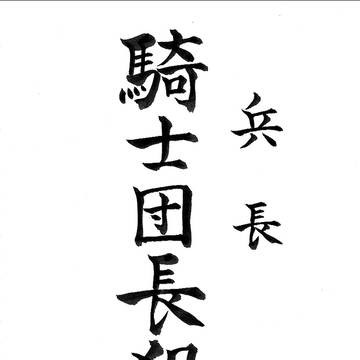 兵長
騎士団長